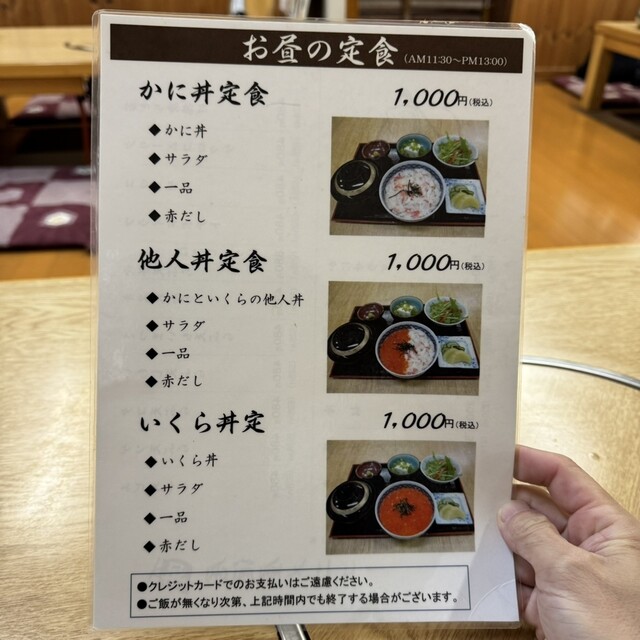 お昼の定食（AM11:30～PM13:00）
かに丼定食 1,000円（税込）
◆かに丼
◆サラダ
◆一品
◆赤だし
他人丼定食 1,000円（税込）
◆かにといくらの他人丼
◆サラダ
◆一品
◆赤だし
いくら丼定 1,000円（税込）
◆いくら丼
◆サラダ
◆一品
◆赤だし
●クレジットカードでのお支払いはご遠慮ください。
●ご飯が無くなり次第、上記時間内でも終了する場合がございます。